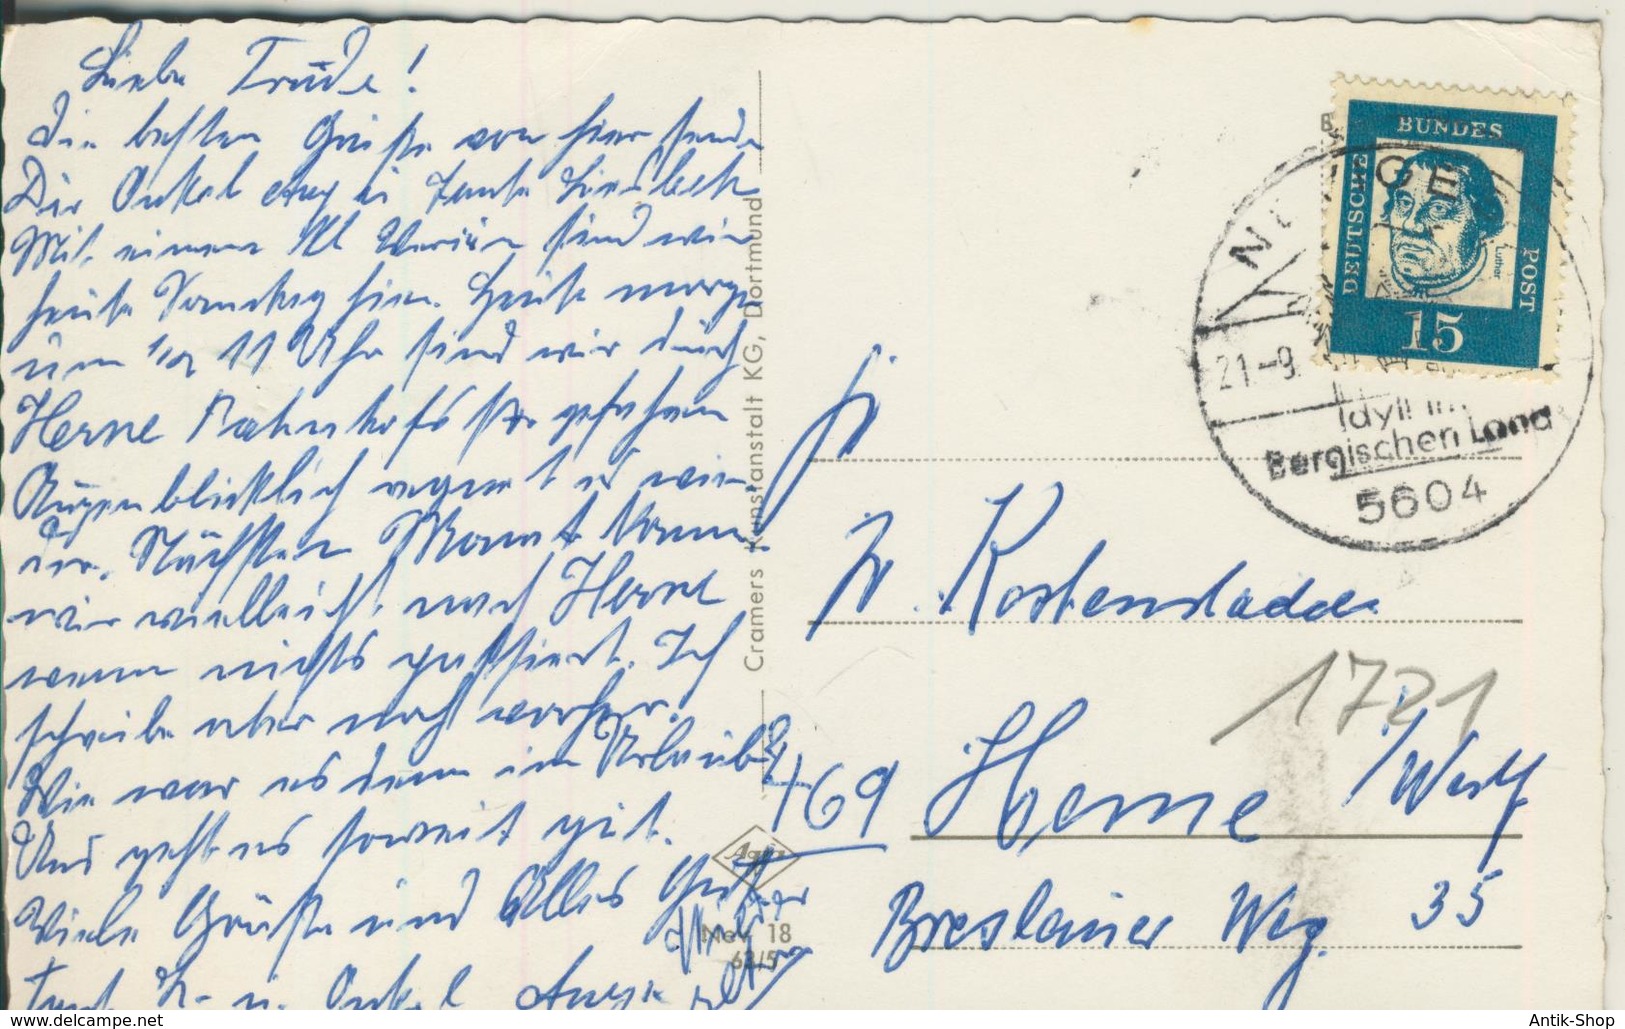 Liebe Trude!
Die besten Grüße von hier sendet
Dir Onkel Aug u Tante Liesbeth
Mit einem Kl Verein sind wir
heute Sonntag hier. Heute morgen
um 1/2 11 Uhr sind wir durch
Herne Bahnhofstr gefahren
Augenblicklich regnet es wie-
der. Nächsten Monat kommen
wir vielleicht nach Herne
wenn nichts passiert. Ich
schreibe aber noch vorher.
Wie war es denn im Urlaub?
Uns geht es soweit gut.
Viele Grüße und Alles Gute
Tant L. u. Onkel August
Cramers Kunstanstalt KG, Dortmund
Agfa
Nev 18
63/5
DEUTSCHE
BUNDES
POST
Luther
15
21.-9.
Idyll im
Bergischen Land
5604
Fr. Kostenstadde
1721
469 Herne /Westf
Breslauer Weg. 35
Antik-Shop
www.delcampe.net